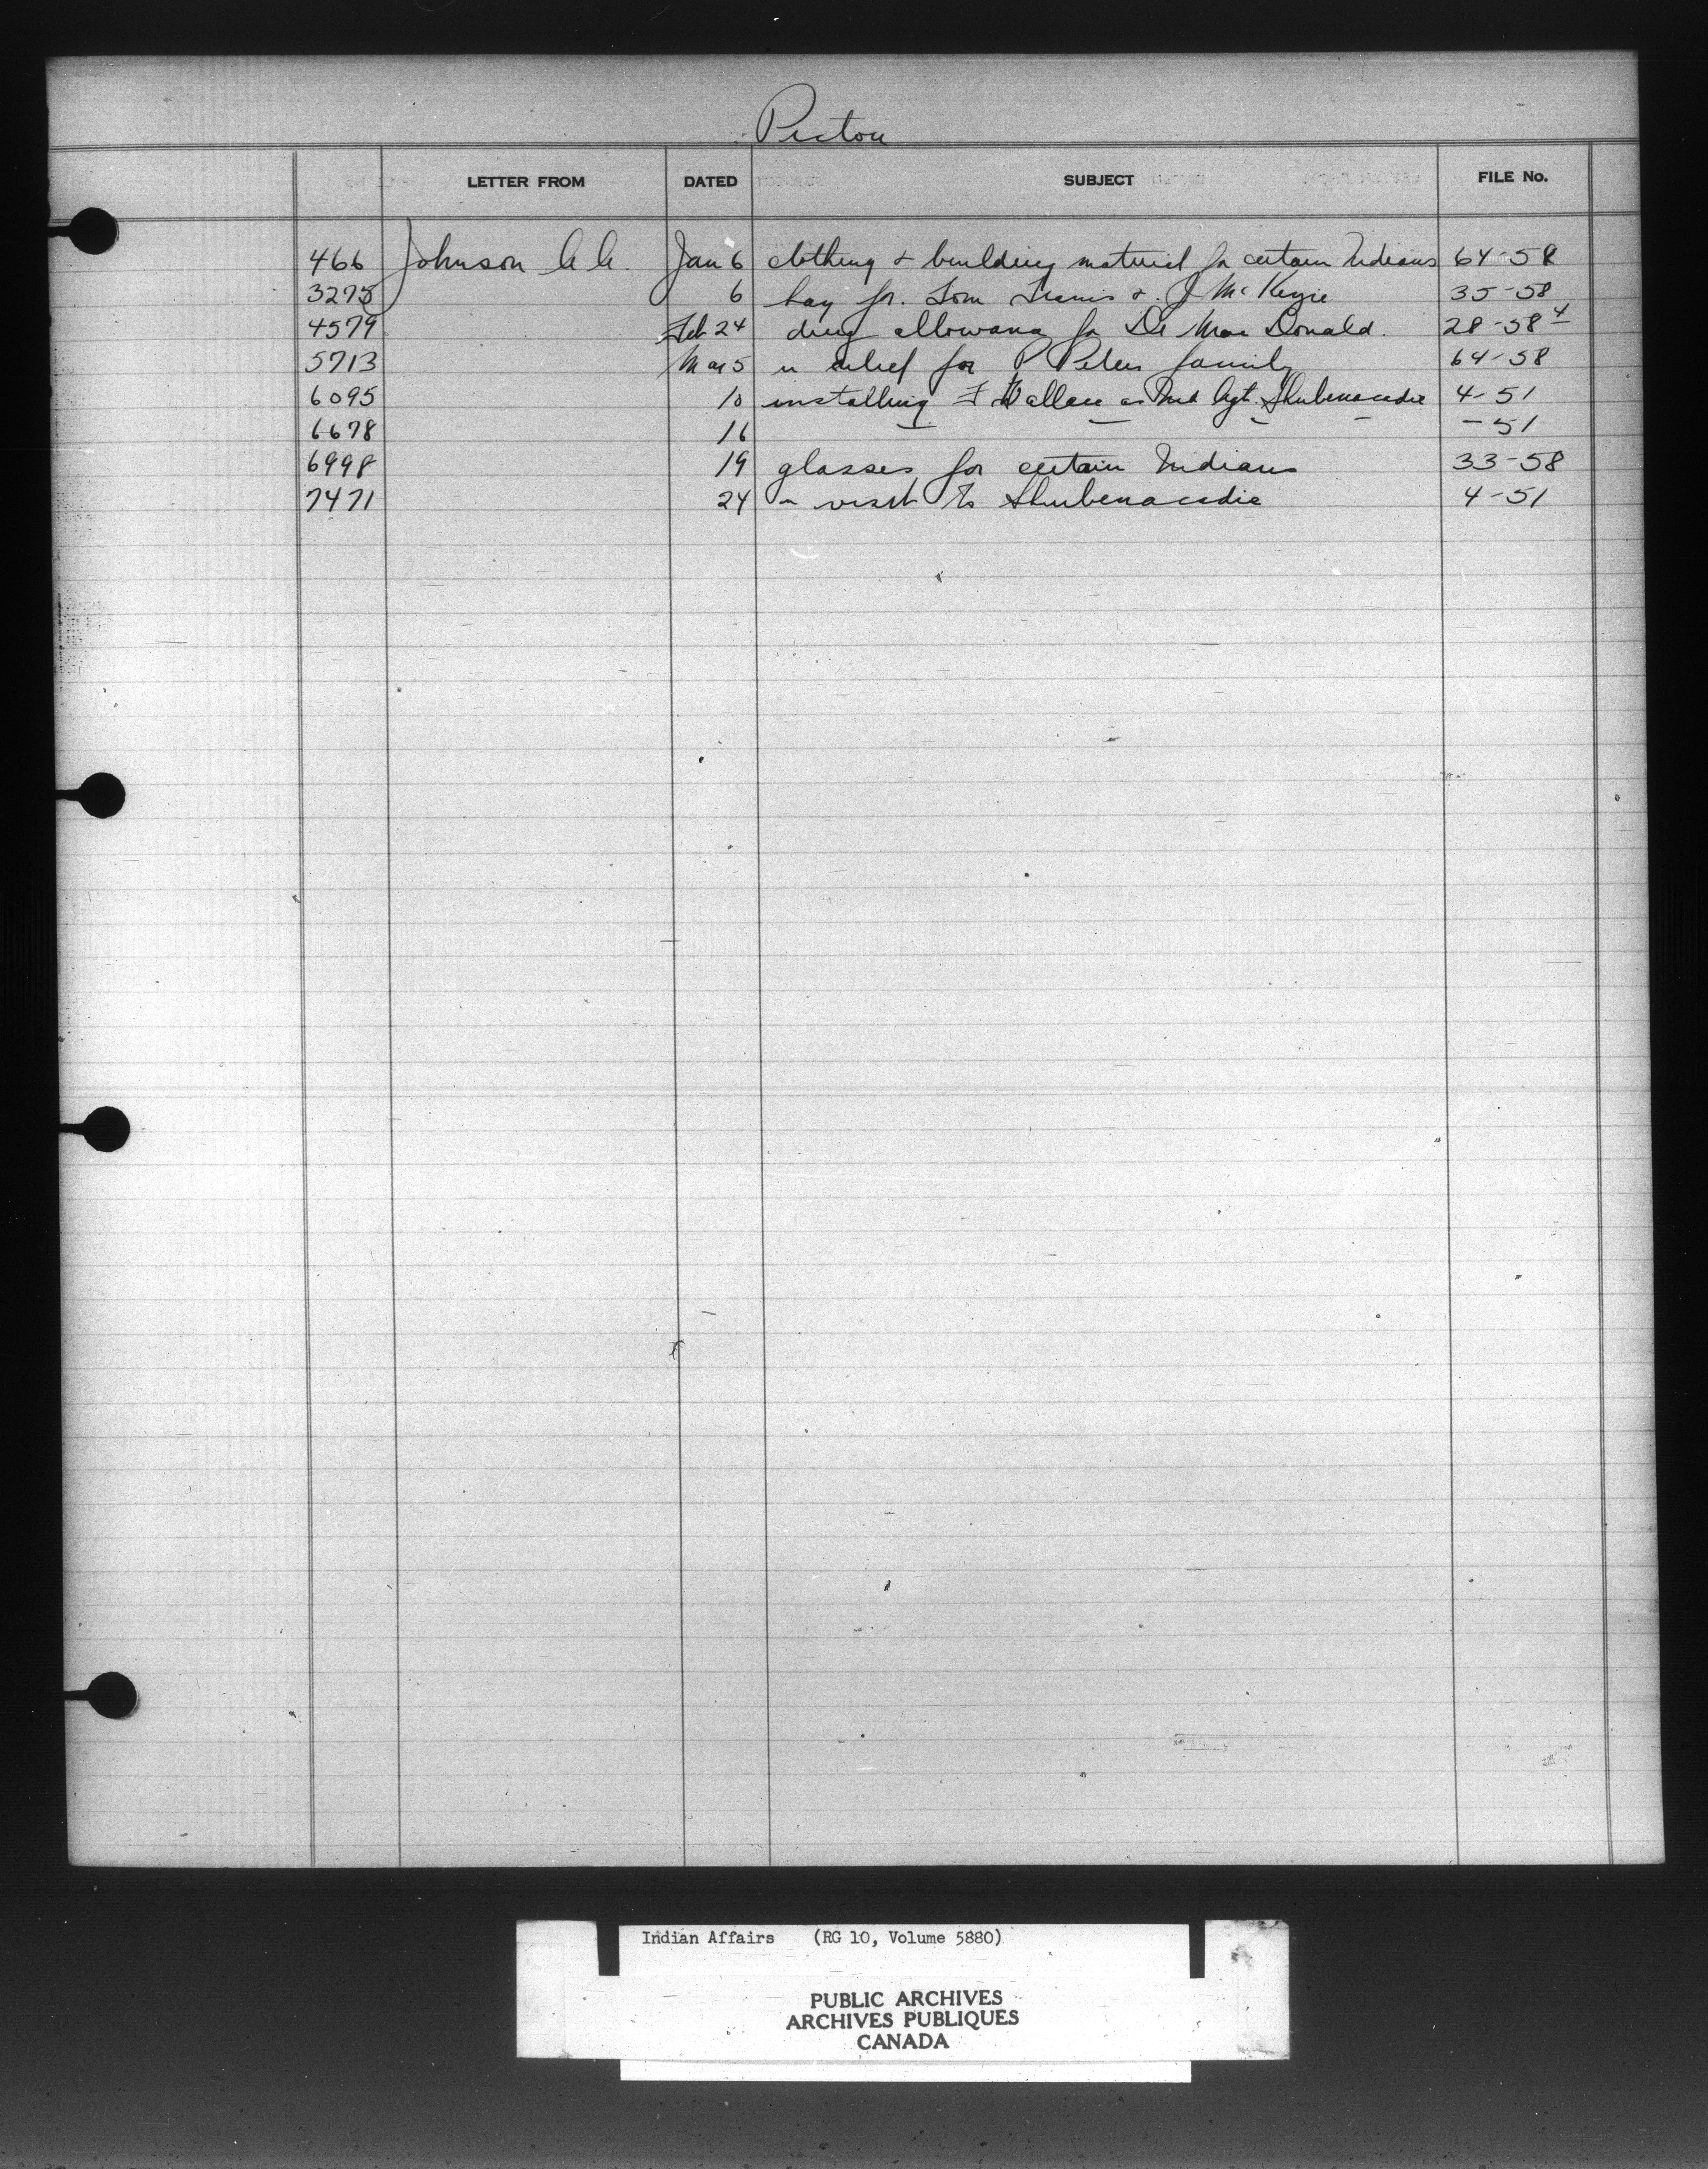 Pictou
LETTER FROM DATED SUBJECT FILE No.
466 Johnson A A. Jan 6 clothing & building material for certain Indians 64-58
3275 6 hay for. Tom Francis &. J McKenzie 35-58
4579 Feb 24 drug allowance for Dr Mac Donald. 28-58 4
5713 Mar 5 relief for P Peters family 64-58
6095 10 installing F Wallace as Ind Agt. Shubenacadie 4-51
6678 16 — — — — -51
6998 19 glasses for certain Indians 33-58
7471 24 visit to Shubenacadie 4-51
Indian Affairs (RG 10, Volume 5880)
PUBLIC ARCHIVES
ARCHIVES PUBLIQUES
CANADA